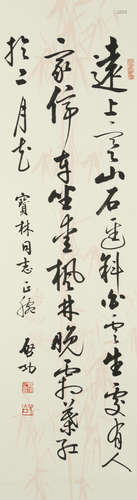 遠上寒山石徑斜白雲生處有人
家停車坐愛楓林晚霜葉紅
於二月花
寶林同志正腕 啟功